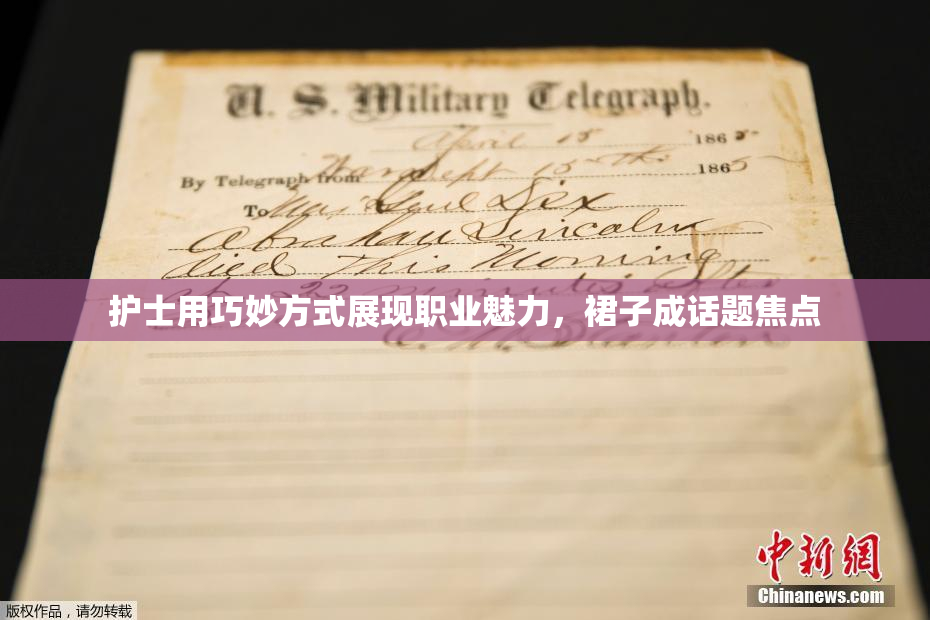 U. S. Military Telegraph.
April 15 1865
By Telegraph from War Dept 15th 1865
To Maj Genl Dix
Abraham Lincoln
died This Morning
at 22 minutes after
护士用巧妙方式展现职业魅力，裙子成话题焦点
E. M. Stanton
中新网
Chinanews.com
版权作品，请勿转载